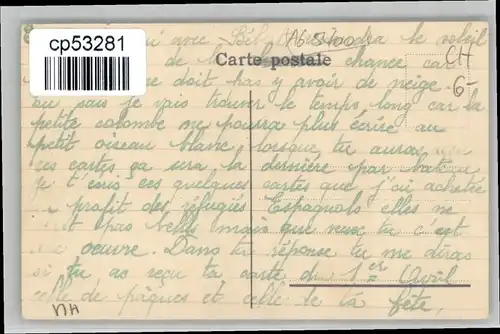 cp53281
qui avec le soleil
A6 5400
Carte postale
de la chance car
CH
ne doit pas y avoir de neige
6-
tu sais je vais trouver le temps long car la
petite colombe me pourra plus écrire au
petit oiseau blanc lorsque tu auras
ces cartes ça sera la dernière par bateau
je t'écris ces quelques cartes que j'ai acheté
profit des réfugiés Espagnols elles ne
sont pas belles mais que veux tu c'est
oeuvre. Dans ta réponse tu me diras
si tu as reçu ta carte du 1er Avril
celle de pâques et celle de ta fête,
NH